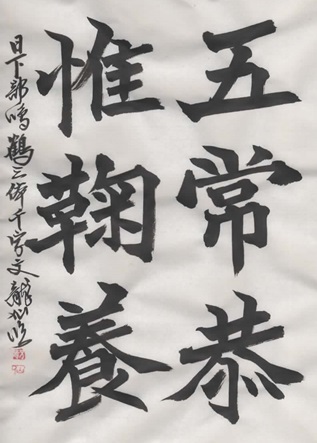 五常恭
惟鞠養
日下部鳴鶴三体千字文龍